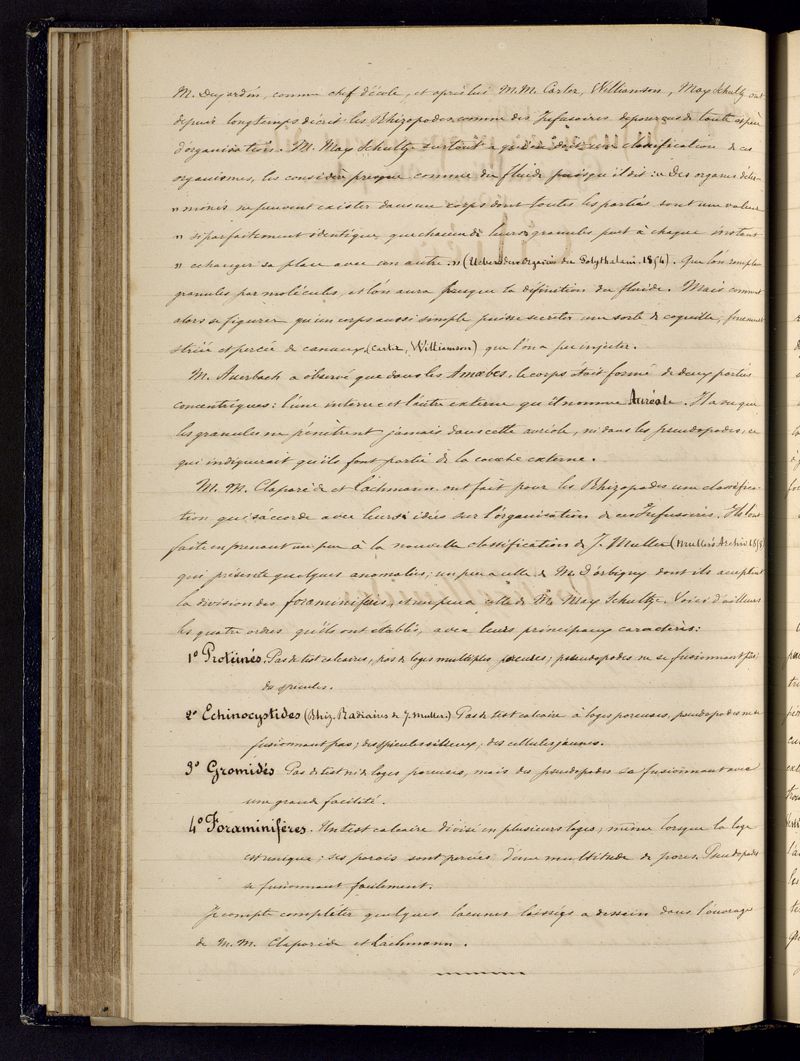 M. Dujardin, comme chef d'école, et après lui M.M. Carter, Williamson, Max Schultz ont
depuis longtemps décrit les Rhizopodes comme des Infusoires dépourvus de toute espèce
d'organisation. M. Max Schultze surtout a qui on doit une classification de ces
organismes, les considère presque comme du fluide puisqu'il dit: « Des organes déter-
" minés ne peuvent exister dans un corps dont toutes les parties sont une valeur
" si parfaitement identique que chacun de leurs granules peut à chaque instant
" echanger sa place avec son autre." (Ueber den Organism der Polythalam. 1854). Que l'on remplace
granules par molécules, et l'on aura presque la définition du fluide. Mais comment
alors se figurer qu'un corps aussi simple puisse secréter une sorte de coquille, finement
striée et percée de canaux, (Carter, Williamson) que l'on a pu injecter.
M. Auerbach a observé que dans les Amœbes, le corps était formé de deux parties
concentriques: l'une interne et l'autre externe qu'il nomme Auréole. Il a vu que
les granules ne pénètrent jamais dans cette auréole, ni dans les pseudopodes, ce
qui indiquerait qu'ils font partie de la couche externe.
M. M. Claparède et Lachmann ont fait pour les Rhizopodes une classifica-
tion qui s'accorde avec leurs idées sur l'organisation de ces Infusoires. Ils l'ont
faite en prenant un peu à la nouvelle classification de J. Muller (Muller's Archiv 1858)
qui présente quelques anomalies; un peu a celle de M. D'orbigny dont ils acceptent
la division des foraminifères, et un peu a celle de M. Max Schultze. Voici d'ailleurs
les quatre ordres qu'ils ont établis, avec leurs principaux caractères:
1º Protéinés. Pas de test calcaires, pas de loges multiples poreuses; pseudopodes ne se fusionnant pas;
des spicules.
2º Echinocystides (Rhiz. Radiaires de J. Muller.) Pas de test calcaire à loges poreuses, pseudopodes ne se
fusionnant pas; des spicules silleux; des cellules jaunes.
3º Gromidés Pas de test ni de loges poreuses, mais des pseudopodes se fusionnant avec
une grande facilité.
4º Foraminifères. Un test calcaire divisé en plusieurs loges; même lorsque la loge
est unique; ses parois sont percées d'une multitude de pores. Pseudopodes
se fusionnant facilement.
Je compte compléter quelques lacunes laissées a dessein dans l'ouvrage
de M. M. Claparède et Lachmann.